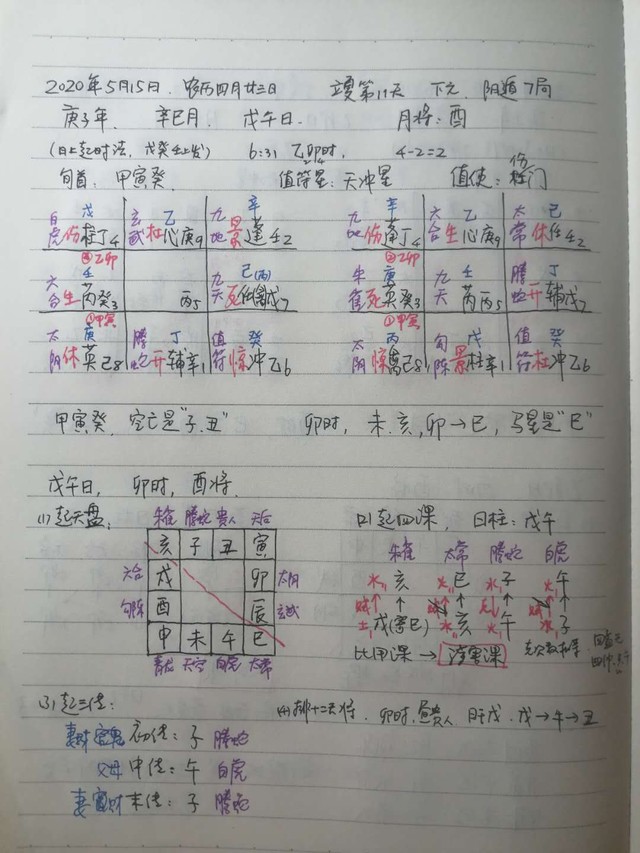 2020年5月15日. 农历四月廿三日 立夏第11天 下元. 阴遁7局
庚子年. 辛巳月. 戊午日. 月将:酉
(日上起时法,戊癸壬上发) 6:31 乙卯时, 4-2=2
旬首: 甲寅癸. 值符星:天冲星 值使: 伤 杜门
白 戊 玄 乙 九 辛 九 辛 六 乙 太 己
虎伤柱丁4 武杜心庚9 地景蓬壬2 地伤蓬丁4 合生心庚9 常休任壬2
③乙卯 ②乙卯
六 壬 九 己(丙) 朱 庚 九 壬 腾 丁
合生芮癸3 丙5 天死任戊7 雀死英癸3 天芮丙5 蛇开辅戊7
①甲寅 ①甲寅
太 庚 腾 丁 值 癸 太 丙 勾 戊 值 癸
阴休英己8 蛇开辅辛1 符惊冲乙6 阴惊禽己8 陈景柱辛1 符杜冲乙6
甲寅癸. 空亡是"子.丑" 卯时, 未.亥,卯→巳, 马星是"巳"
戊午日, 卯时, 酉将.
(1)起天盘: 朱雀 腾蛇 贵人 天后
亥 子 丑 寅
六合 戌 卯 太阴
勾陈 酉 辰 玄武
申 未 午 巳
青龙 天空 白虎 太常
(2)起四课, 日柱:戊午
朱雀 太常 腾蛇 白虎
水 亥 火 巳 水 子 火 午
贼↑ ↑ 贼↑ ↑ ↑ ↑
土 戊(寄巳) 水 亥 火 午 水 子
比用课 → 涉害课
(3)起三传:
妻财 初传: 子 腾蛇
父母 中传: 午 白虎
妻财 末传: 子 腾蛇
(4)排十二天将. 卯时,昼贵人 日干戊. 戊→牛→丑